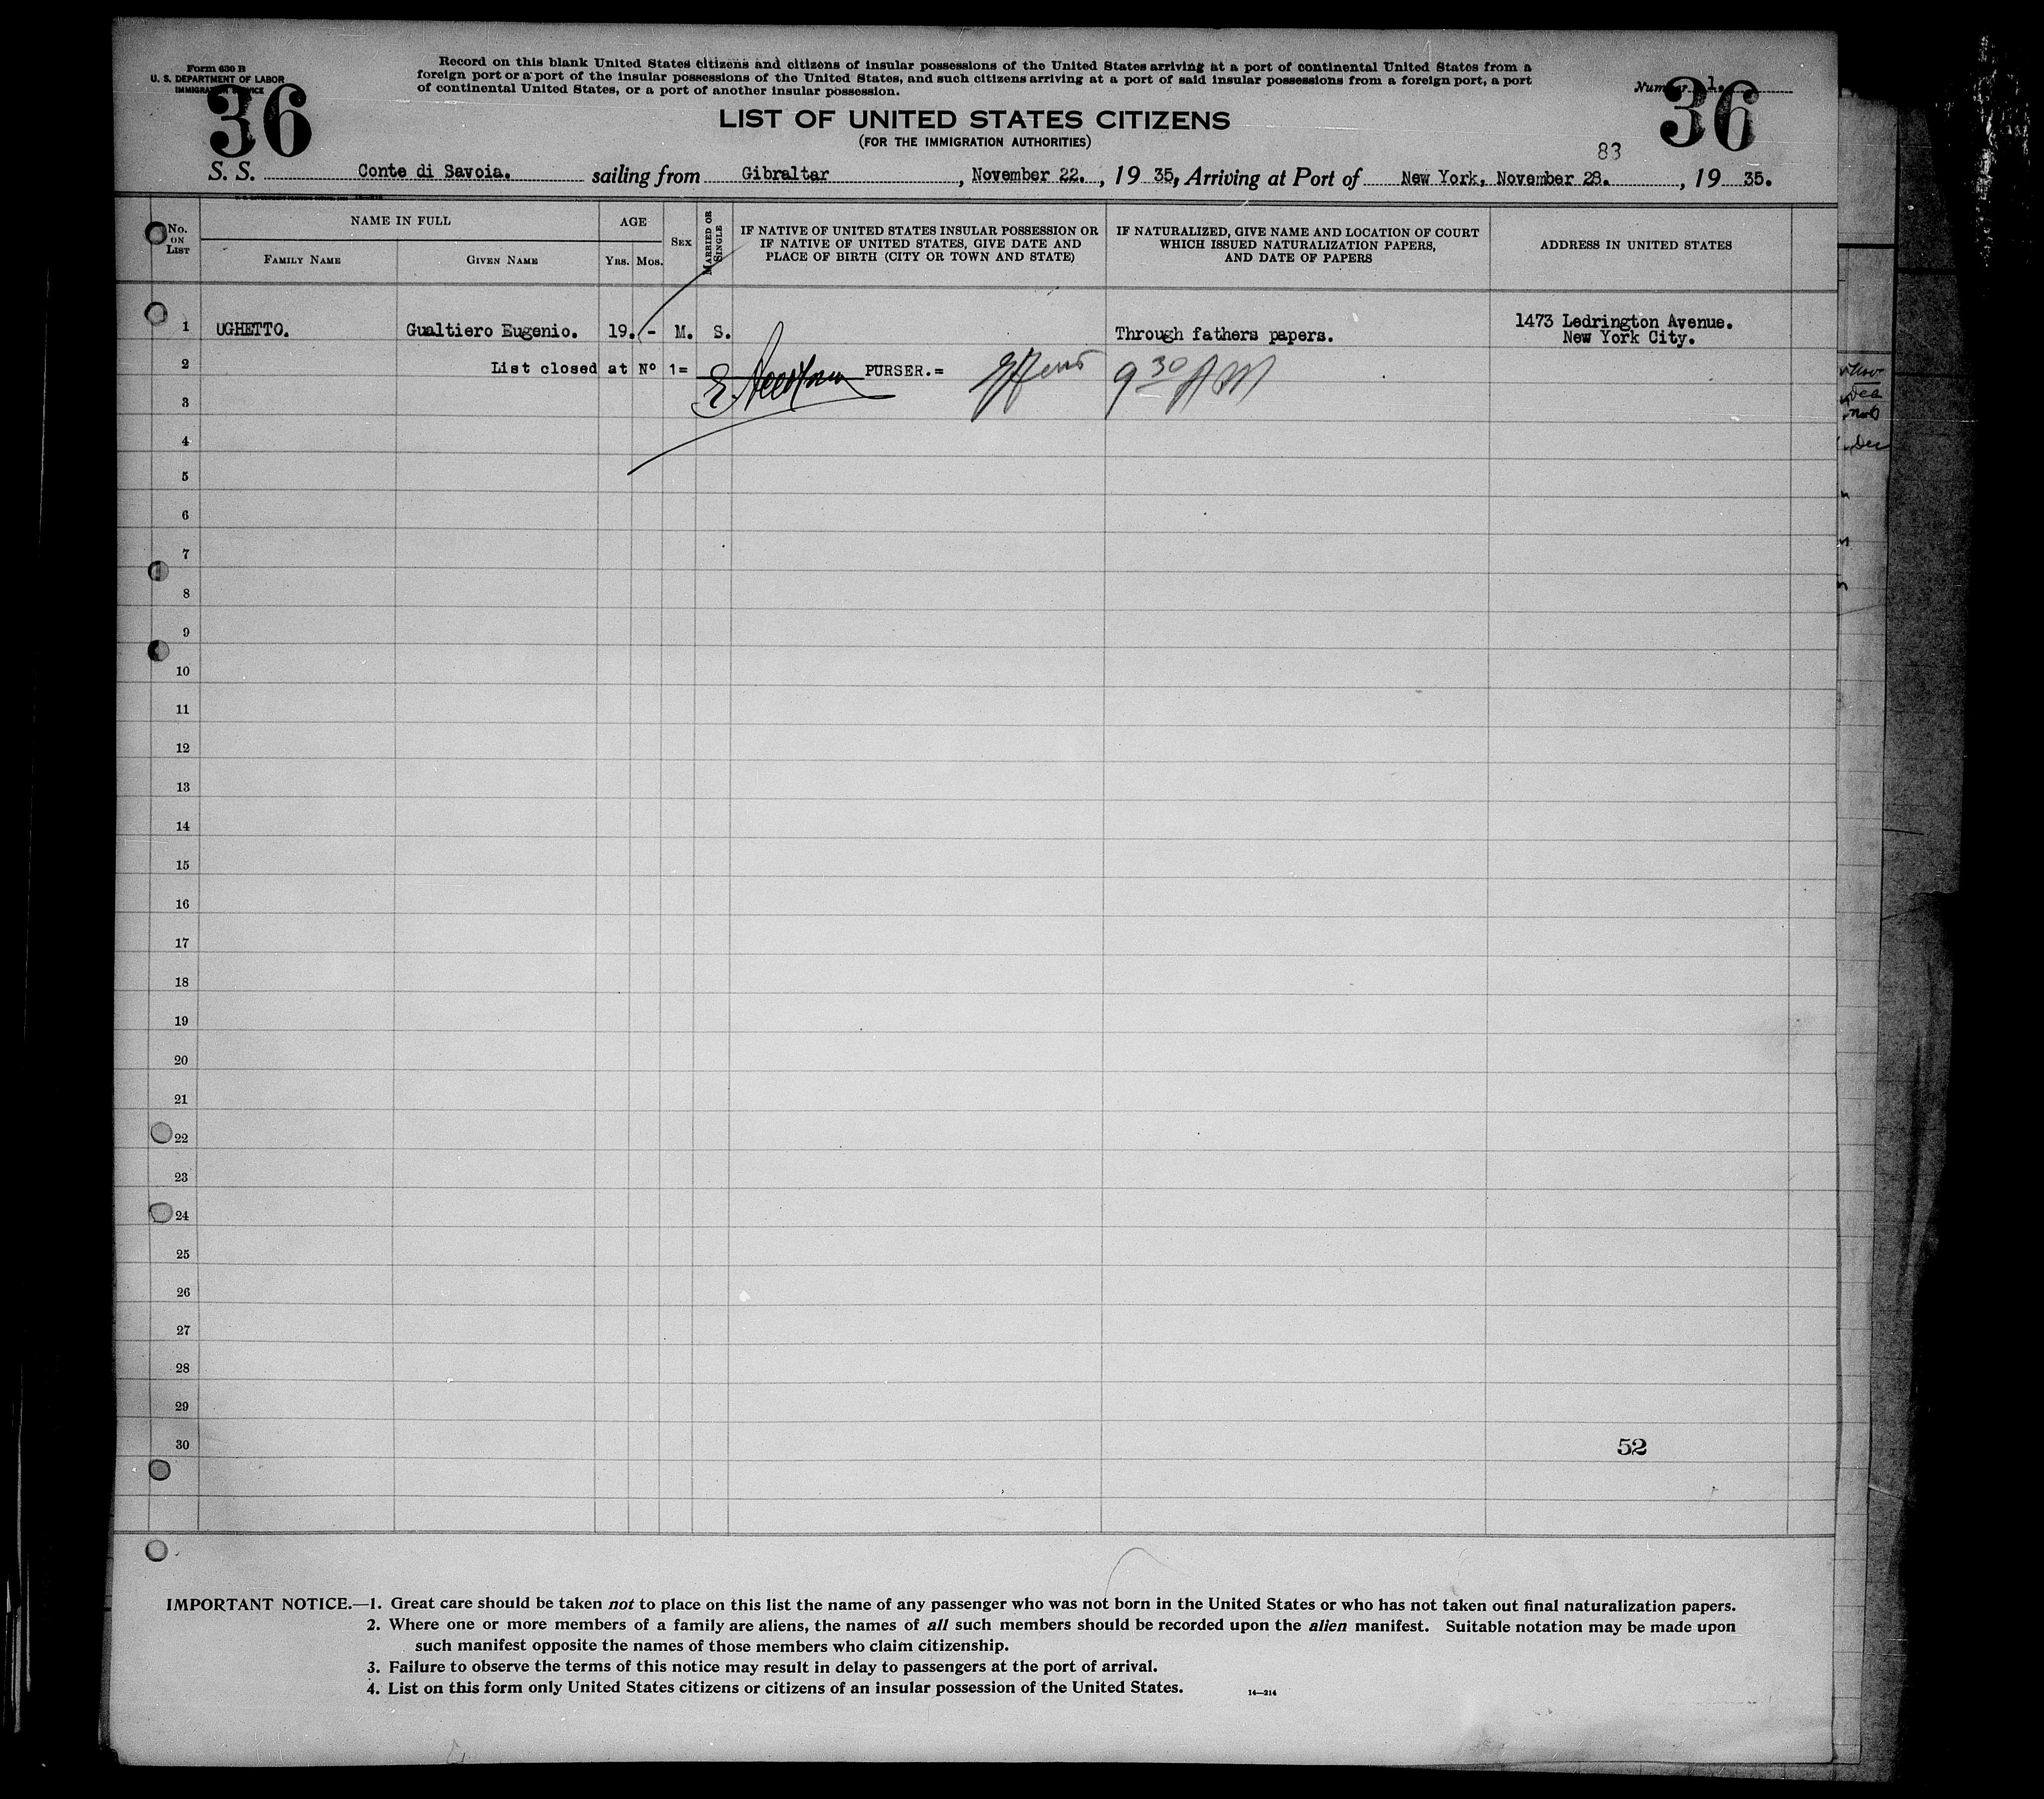 Form 630 B
U. S. DEPARTMENT OF LABOR
IMMIGRATION SERVICE
Record on this blank United States citizens and citizens of insular possessions of the United States arriving at a port of continental United States from a
foreign port or a port of the insular possessions of the United States, and such citizens arriving at a port of said insular possessions from a foreign port, a port
of continental United States, or a port of another insular possession.
Number 1.
36
36
LIST OF UNITED STATES CITIZENS
(FOR THE IMMIGRATION AUTHORITIES)
83
S. S. Conte di Savoia. sailing from Gibraltar, November 22., 19 35, Arriving at Port of New York, November 28., 19 35.
No. ON LIST
NAME IN FULL
FAMILY NAME
GIVEN NAME
AGE
YRS. MOS.
SEX
MARRIED OR SINGLE
IF NATIVE OF UNITED STATES INSULAR POSSESSION OR
IF NATIVE OF UNITED STATES, GIVE DATE AND
PLACE OF BIRTH (CITY OR TOWN AND STATE)
IF NATURALIZED, GIVE NAME AND LOCATION OF COURT
WHICH ISSUED NATURALIZATION PAPERS,
AND DATE OF PAPERS
ADDRESS IN UNITED STATES
1 UGHETTO. Gualtiero Eugenio. 19. - M. S. Through fathers papers. 1473 Ledrington Avenue.
New York City.
2 List closed at Nº 1= PURSER.= 9 30 AM
3
4
5
6
7
8
9
10
11
12
13
14
15
16
17
18
19
20
21
22
23
24
25
26
27
28
29
30 52
IMPORTANT NOTICE.—1. Great care should be taken not to place on this list the name of any passenger who was not born in the United States or who has not taken out final naturalization papers.
2. Where one or more members of a family are aliens, the names of all such members should be recorded upon the alien manifest. Suitable notation may be made upon
such manifest opposite the names of those members who claim citizenship.
3. Failure to observe the terms of this notice may result in delay to passengers at the port of arrival.
4. List on this form only United States citizens or citizens of an insular possession of the United States.
14—214